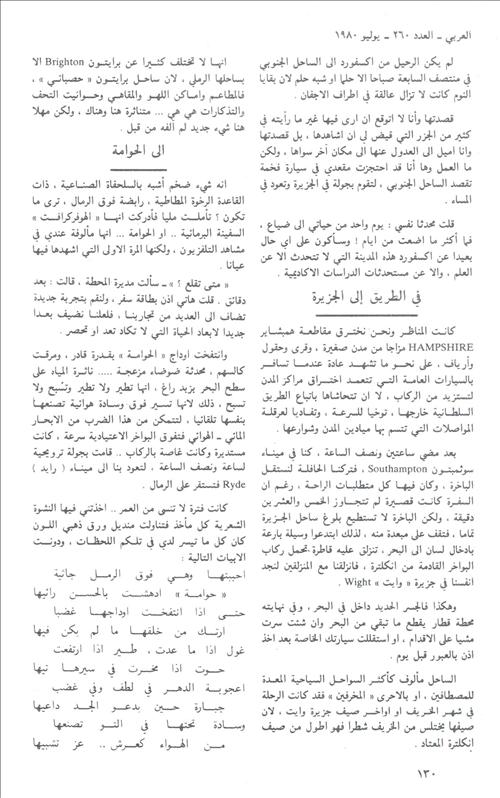 العربي ـ العدد ٢٦٠ ـ يوليو ١٩٨٠
لم يكن الرحيل من اكسفورد الى الساحل الجنوبي
في منتصف السابعة صباحا الا حلما او شبه حلم لان بقايا
النوم كانت لا تزال عالقة في اطراف الاجفان .
قصدتها وأنا لا اتوقع ان ارى فيها غير ما رأيته في
كثير من الجزر التي قيض لي ان اشاهدها ، بل قصدتها
وانا اميل الى العدول عنها الى مكان آخر سواها ، ولكن
ما العمل وها أنا قد احتجزت مقعدي في سيارة فخمة
تقصد الساحل الجنوبي ، لتقوم بجولة في الجزيرة وتعود في
المساء .
قلت محدثا نفسي : يوم واحد من حياتي الى ضياع ،
فما أكثر ما اضعت من ايام ! وسأكون على اي حال
بعيدا عن اكسفورد هذه المدينة التي لا تتحدث الا عن
العلم ، والا عن مستحدثات الدراسات الاكاديمية .
في الطريق إلى الجزيرة
كانت المناظر ونحن نخترق مقاطعة همبشاير
HAMPSHIRE مزاجا من مدن صغيرة ، وقرى وحقول
وأرياف ، على نحو ما نشهد عادة عندما نسافر
بالسيارات العامة التي تتعمد اختراق مراكز المدن
لتستزيد من الركاب ، لا ان تتحاشاها باتباع الطريق
السلطانية خارجها ، توخيا للسرعة ، وتفاديا لعرقلة
المواصلات التي تتسم بها ميادين المدن وشوارعها .
بعد مضي ساعتين ونصف الساعة ، كنا في ميناء
سوثمبتون Southampton ، فتركنا الحافلة لنستقل
الباخرة ، وكان فيها كل متطلبات الراحة ، رغم ان
السفرة كانت قصيرة لم تتجاوز الخمس والعشرين
دقيقة ، ولكن الباخرة لا تستطيع بلوغ ساحل الجزيرة
تماما ، فتقف على مبعدة منه ، لذلك ابتدعوا وسيلة بارعة
بادخال لسان الى البحر ، تنزلق عليه قاطرة تحمل ركاب
البواخر القادمة من انكلترة ، فانزلقنا مع المنزلقين لنجد
انفسنا في جزيرة « وايت » Wight .
وهكذا فالجسر الحديد داخل في البحر ، وفي نهايته
محطة قطار يقطع ما تبقي من البحر وان شئت سرت
مشيا على الاقدام ، او استقللت سيارتك الخاصة بعد اخذ
اذن بالعبور قبل يوم .
الساحل مألوف كأكثر السواحل السياحية المعدة
للمصطافين ، او بالاحرى « المخرفين » فقد كانت الرحلة
في شهر الخريف او اواخر صيف جزيرة وايت ، لان
صيفها يختلس من الخريف شطرا فهو اطول من صيف
انكلترة المعتاد .
انها لا تختلف كثيرا عن برايتون Brighton الا
بساحلها الرملي ، لان ساحل برايتون « حصبائي » ،
فالمطاعم واماكن اللهو والمقاهي وحوانيت التحف
والتذكارات هي هي ... متناثرة هنا وهناك ، ولكن مهلا
هنا شيء جديد لم آلفه من قبل .
الى الحوامة
انه شيء ضخم أشبه بالسلحفاة الصناعية ، ذات
القاعدة الرخوة المطاطية ، رابضة فوق الرمال ، ترى ما
تكون ؟ تأملت مليا فأدركت انها « الهوفركرافت »
السفينة البرمائية .. او الحوامة ... انها مألوفة عندي في
مشاهد التلفزيون ، ولكنها المرة الاولى التي اشهدها فيها
عيانا .
« متى تقلع ؟ » ـ سألت مديرة المحطة ، قالت : بعد
دقائق . قلت هاتي اذن بطاقة سفر ، ولنقم بتجربة جديدة
تضاف الى العديد من تجاربنا ، فلعلنا نضيف بعدا
جديدا لابعاد الحياة التي لا تكاد تعد او تحصر .
وانتفخت اوداج « الحوامة » بقدرة قادر ، ومرقت
كالسهم ، محدثة ضوضاء مزعجة ..... ناثرة المياه على
سطح البحر بزبد راغ ، انها تطير ولا تطير وتسبح ولا
تسبح ، ذلك لانها تسير فوق وسادة هوائية تصنعها
بنفسها تلقائيا ، لتتمكن من هذا الضرب من الابحار
المائي ـ الهوائي فتفوق البواخر الاعتيادية سرعة ، كانت
مستديرة وكانت غاصة بالركاب .. قامت بجولة ترويحية
لساعة ونصف الساعة ، لتعود بنا الى ميناء ( رايد )
Ryde فتستقر على الرمال .
كانت فترة لا تنسى من العمر .. اخذتني فيها النشوة
الشعرية كل مأخذ فتناولت منديل ورق ذهبي اللون
كان كل ما تيسر لدي في تلكم اللحظات ، ودونت
الابيات التالية :
احببتها وهي فوق الرمل جاثية
« حوامة » ادهشت بالحسن رائيها
حتى اذا انتفخت اوداجها غضبا
ارتك من خلفها ما لم يكن فيها
غول اذا ما عدت ، طير اذا ارتفعت
حوت اذا مخرت في سيرها تيها
اعجوبة الدهر في لطف وفي غضب
جبارة حين يدعو الجد داعيها
وسادة تحتها في التو تصنعها
من الهواء كعرش .. عز تشبيها
١٣٠